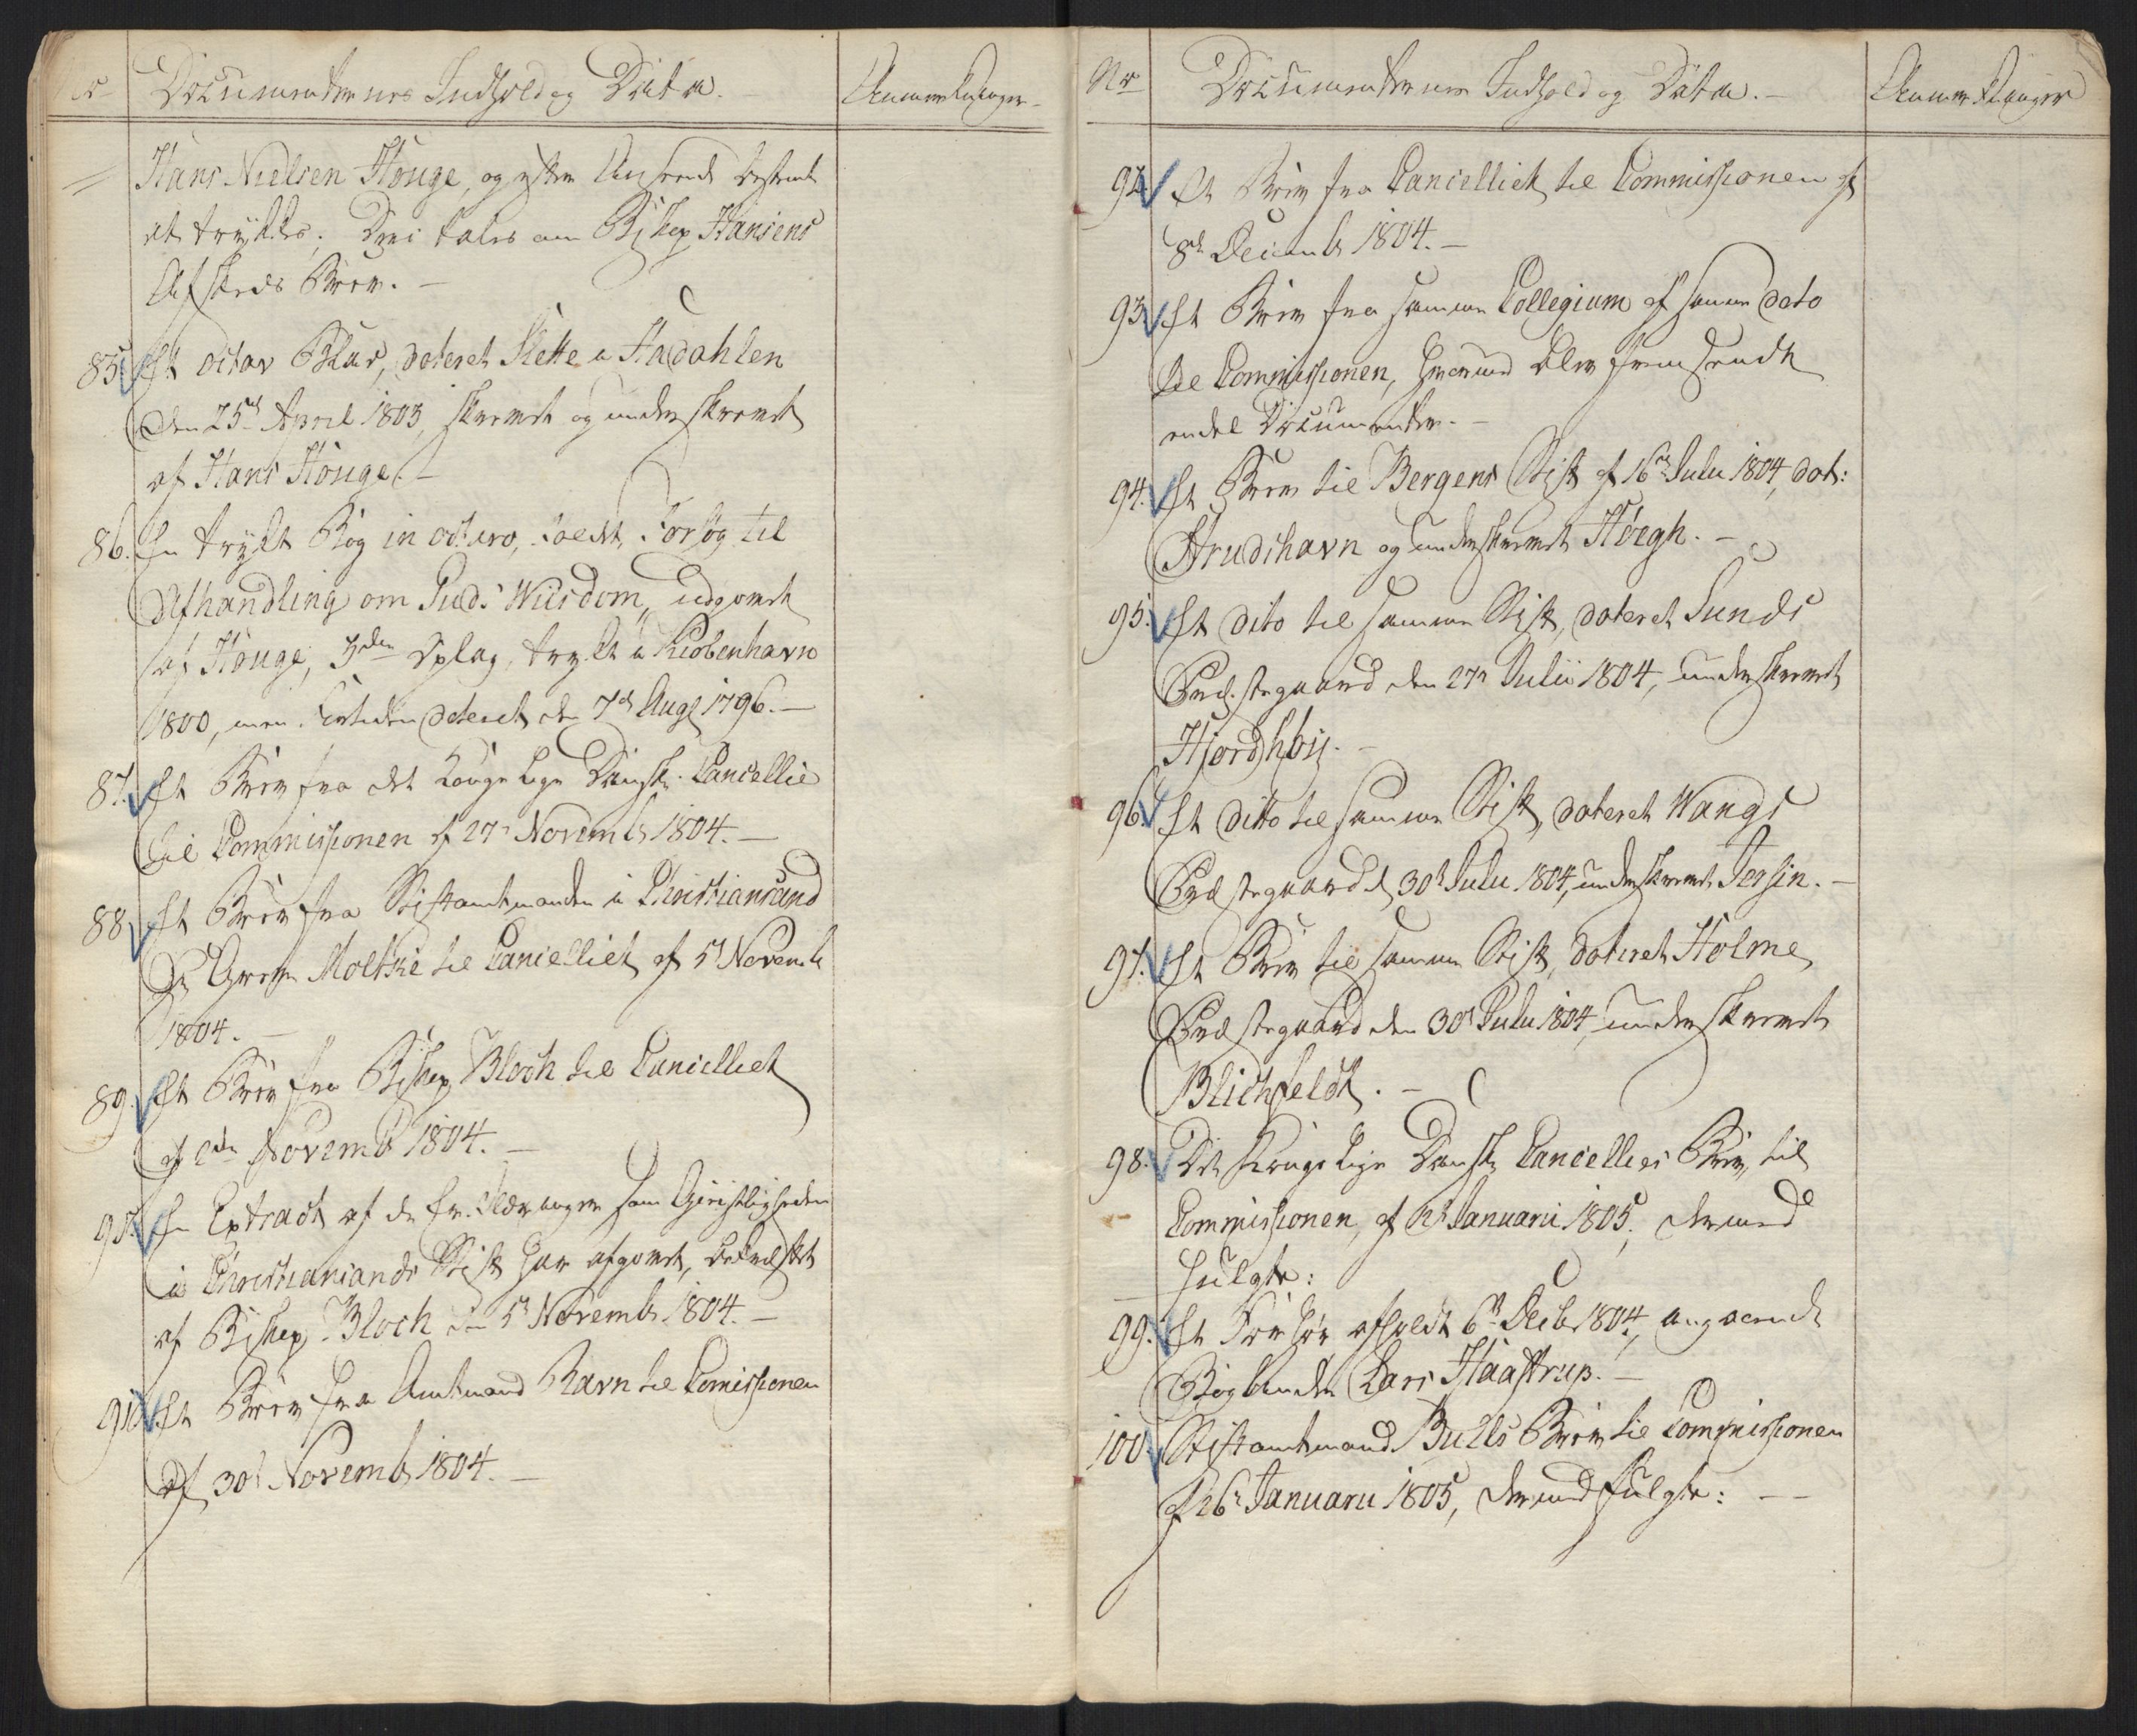 Nr Documenternes Indhold og Data. Anmerkninger
Hans Nielsen Houge, og efter Anseende bestemt
at trykkes. Deri tales om Biskop Hansens
Afskeds Brev. —
85. Et octav Blad, dateret Slette i Haldahlen
den 25de April 1803, skrevet og underskrevet
af Hans Houge. —
86. En trykt Bog in octavo, kaldt, Forsøg til
Afhandling om Guds Wiisdom, udgivet
af Houge, 3die Oplag, trykt i Kiøbenhavn
1800, men dateret den 7de Aug 1796. —
87. Et Brev fra det Kongelige Danske Cancellie
til Commissionen af 27de Novembr 1804. —
88. Et Brev fra Stiftamtmanden i Christiansand
Hr Greve Moltke til Cancelliet af 5te Novembr
1804. —
89. Et Brev fra Biskop Bloch til Cancelliet
af Novembr 1804. —
90. En Extract af de Erklæringer som Geistligheden
i Christiansands Stift har afgivet, bekræftet
af Biskop Bloch den 5te Novembr 1804. —
91. Et Brev fra Amtmand Ravn til Comissionen
af 30te Novembr 1804. —
Nr Documenternes Indhold og Data. — Anmerkninger
92. Et Brev fra Cancelliet til Commissionen af
8de Decembr 1804. —
93. Et Brev fra samme Collegium af samme dato
til Commissionen, hvormed blev fremsendt
endel Documenter. —
94. Et Brev til Bergens Stift af 16de Julii 1804, dat:
Strudshavn og underskrevet Høegh. —
95. Et dito til samme Stift, dateret Sunds
Præstegaard den 27de Julii 1804, underskrevet
Hjordhøy. —
96. Et ditto til samme Stift, dateret Wangs
Præstegaard d 30te Julii 1804, underskrevet Jersin. —
97. Et Brev til samme Stift, dateret Holme
Præstegaard den 30te Julii 1804, underskrevet
Blichfeldt. —
98. Det Kongelige Danske Cancellies Brev til
Commissionen, af Januarii 1805, dermed
fulgte:
99. Et Forhør afholdt 6te Decbr 1804, angaaende
Bogbinder Lars Haastrup. —
100. Stiftamtmand Bulls Brev til Commissionen
af 26de Januarii 1805, dermed fulgte: —